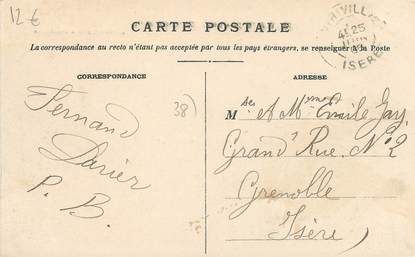 12 €
CARTE POSTALE
La correspondance au recto n'étant pas acceptée par tous les pays étrangers, se renseigner à la Poste
25
ISERE
CORRESPONDANCE
ADRESSE
Fernand
Darier
P. B.
38)
et Mme Emile Gay
Grand' Rue. No 2
Grenoble
Isère)